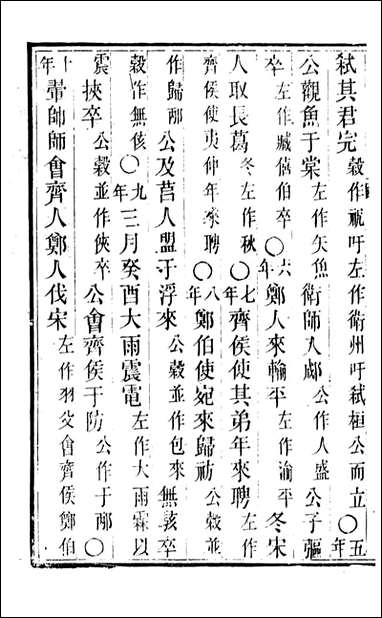 弒其君完 穀作祝吁左作衛州吁弒桓公而立〇五年
公觀魚于棠 左作矢魚 衛師入郕 公作人盛 公子彄
卒 左作臧僖伯卒〇六年 鄭人來輸平 左作渝平 冬宋
人取長葛 冬左作秋〇七年 齊侯使其弟年來聘 左作
齊侯使夷仲年來聘〇八年 鄭伯使宛來歸祊 公穀並
作歸邴 公及莒人盟于浮來 公穀並作包來 無駭卒
穀作無侅〇九年 三月癸酉大雨震電 左作大雨霖以
震 挾卒 公穀並作俠卒 公會齊侯于防 公作于邴〇
十年 翬帥師會齊人鄭人伐宋 左作羽父會齊侯鄭伯